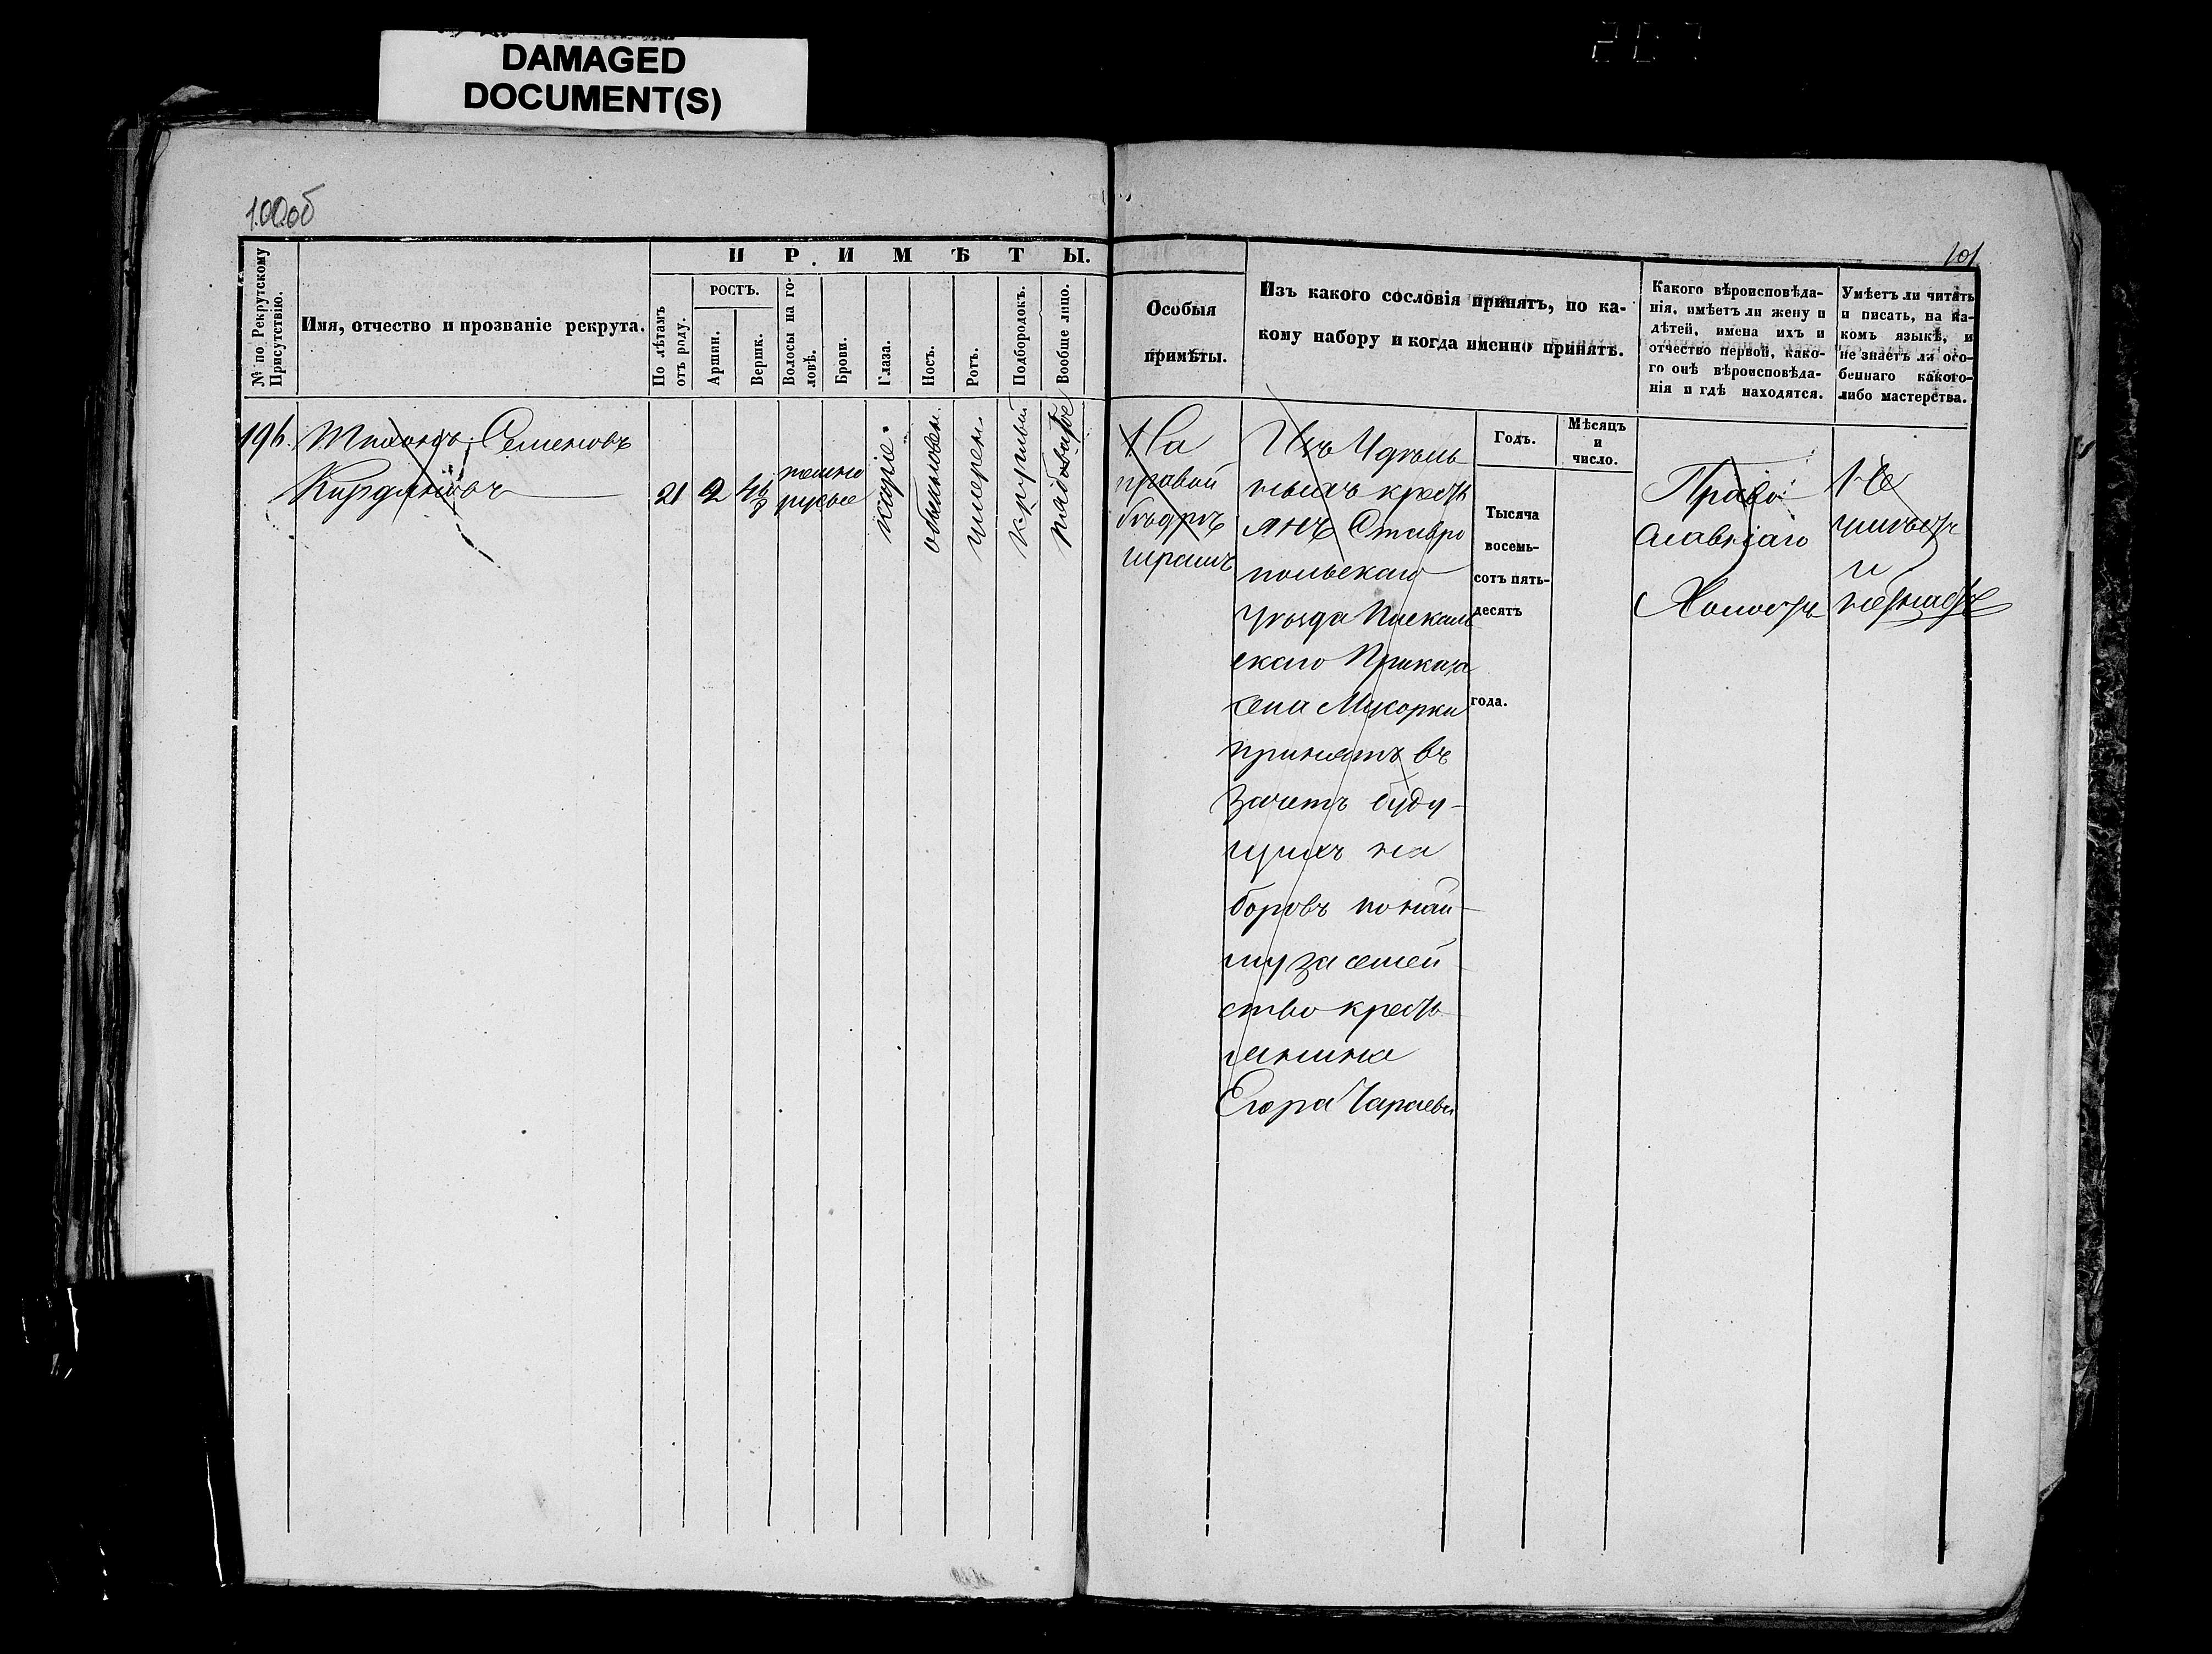 DAMAGED
DOCUMENT(S)
100об
101
№ по Рекрутскому
Присутствію.
Имя, отчество и прозваніе рекрута.
ПРИМѢТЫ.
По лѣтамъ
отъ роду.
РОСТЪ.
Аршин.
Вершк.
Волосы на го-
ловѣ.
Брови.
Глаза.
Носъ.
Ротъ.
Подбородокъ.
Вообще лицо.
Особыя
примѣты.
Изъ какого сословія принятъ, по ка-
кому набору и когда именно принятъ.
Какого вѣроисповѣда-
нія, имѣетъ ли жену и
дѣтей, имена ихъ и
отчество первой, како-
го онѣ вѣроисповѣда-
нія и гдѣ находятся.
Умѣетъ ли читать
и писать, на ка-
комъ языкѣ, и
не знаетъ ли осо-
беннаго какого-
либо мастерства.
196. Тихонъ Семеновъ
21 2
темно
русые
каріе.
обыкновен.
умерен.
круглый
На
правой
бѣдрѣ
шрамъ
Изъ Удѣль
ныхъ кресть
янъ Ставро
польскаго
Уѣзда
скаго Приказа
села Мусорки
принятъ въ
зачетъ буду-
щихъ на
боровъ по най-
му за семей
ство кресть-
янина
Егора
Годъ.
Мѣсяцъ
и
число.
Тысяча
восемь-
сотъ пять-
десятъ
года.
Право-
славнаго
Холостъ
Не
умѣетъ
и
незнаетъ